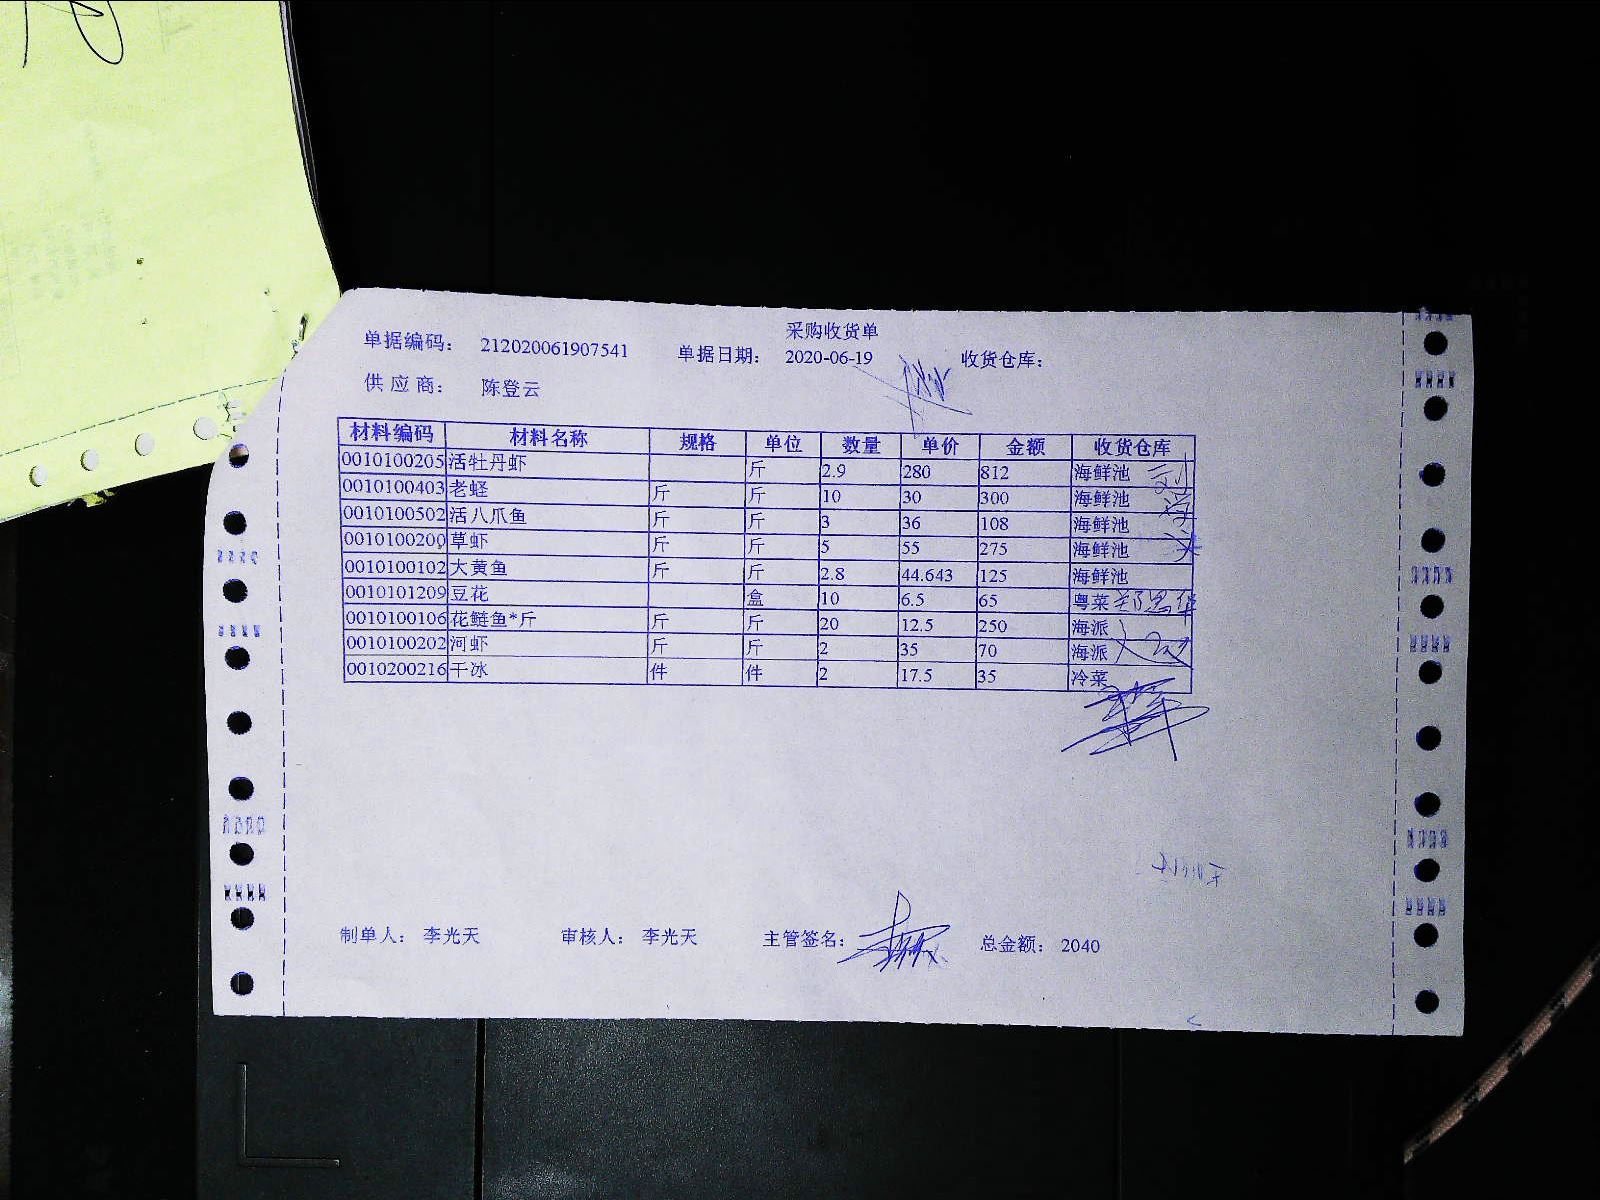 采购收货单
单据编码： 212020061907541 单据日期： 2020-06-19 收货仓库：
供应商： 陈登云
材料编码 材料名称 规格 单位 数量 单价 金额 收货仓库
0010100205 活牡丹虾 斤 2.9 280 812 海鲜池
0010100403 老蛏 斤 斤 10 30 300 海鲜池
0010100502 活八爪鱼 斤 斤 3 36 108 海鲜池
0010100209 草虾 斤 斤 5 55 275 海鲜池
0010100102 大黄鱼 斤 斤 2.8 44.643 125 海鲜池
0010101209 豆花 盒 10 6.5 65 粤菜
0010100106 花鲢鱼*斤 斤 斤 20 12.5 250 海派
0010100202 河虾 斤 斤 2 35 70 海派
0010200216 干冰 件 件 2 17.5 35 冷菜
制单人： 李光天 审核人： 李光天 主管签名： 总金额： 2040